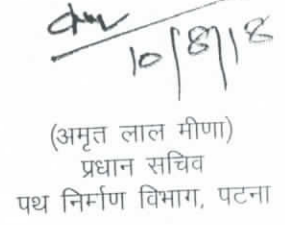 10/8/18
(अमृत लाल मीणा)
प्रधान सचिव
पथ निर्माण विभाग, पटना